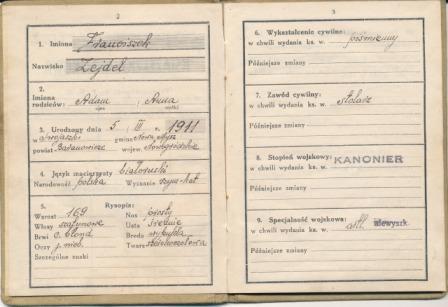 2
1. Imiona Franciszek
Nazwisko Zejdel
2.
Imiona rodziców: Adam Anna
ojca matki
3. Urodzony dnia 5 / III r. 1911
w gmina Nowa Mysz
powiat Baranowicze wojew. Nowogródzkie
4. Język macierzysty białoruski
Narodowość polska Wyznanie rzym-kat
5. Rysopis:
Wzrost 169 Nos prosty
Włosy szatynowe Usta średnie
Brwi c. blond Broda wypukła
Oczy j. nieb. Twarz
Szczególne znaki
3
6. Wykształcenie cywilne:
w chwili wydania ks. w. piśmienny
Późniejsze zmiany
7. Zawód cywilny:
w chwili wydania ks. w. stolarz
Późniejsze zmiany
8. Stopień wojskowy: KANONIER
w chwili wydania ks. w.
Późniejsze zmiany
9. Specjalność wojskowa:
w chwili wydania ks. w. niewyszk.
Późniejsze zmiany